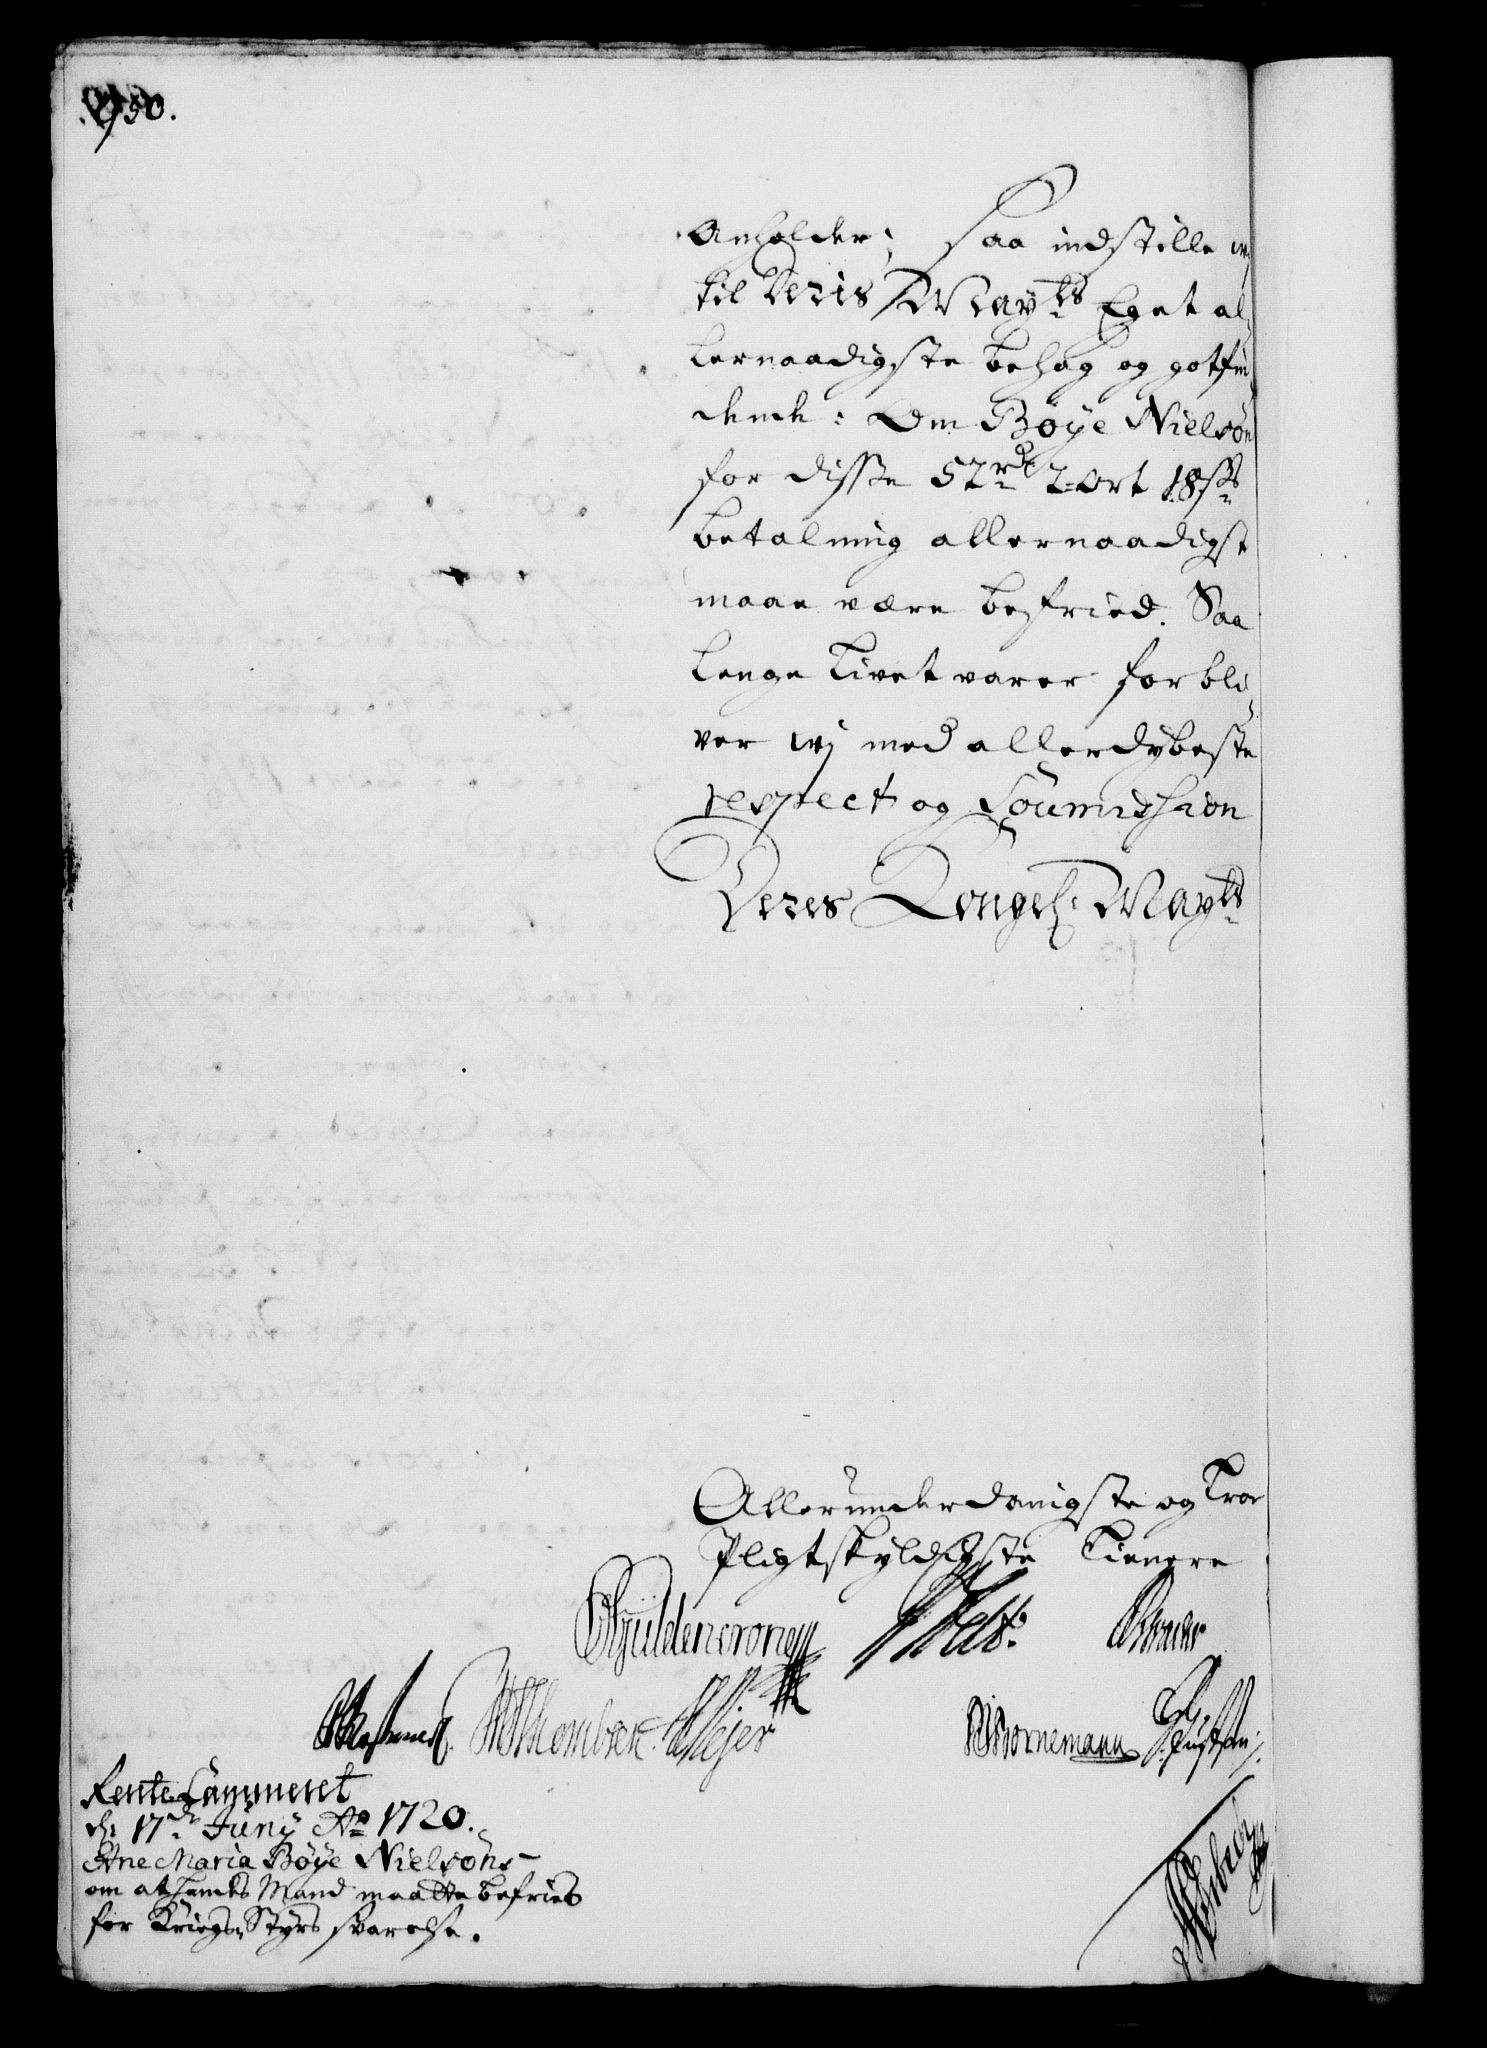 950.
Anholder; Saa indstille wj
til Deris Mayts Eget al¬
lernaadigste behag og gotfin¬
dende: Om Böye Nielsön
for disse 52rd 2 ort 18ss
betalning allernaadigst
maae være befried. Saa
lenge Livet varer forbli¬
ver wj med allerdybeste
respect og Soumission
Deres Kongel: Mayts
Allerunderdanigste og Troe
Pligtskyldigste Tienere
Güldencrone
Meÿer
Bornemann
Rente Cammeret
d: 17de Junÿ Ao 1720.
Ane Maria Böÿe Nielsöns
om at hendes Mand maatte befries
for Kriegs-Styrs svarelse.